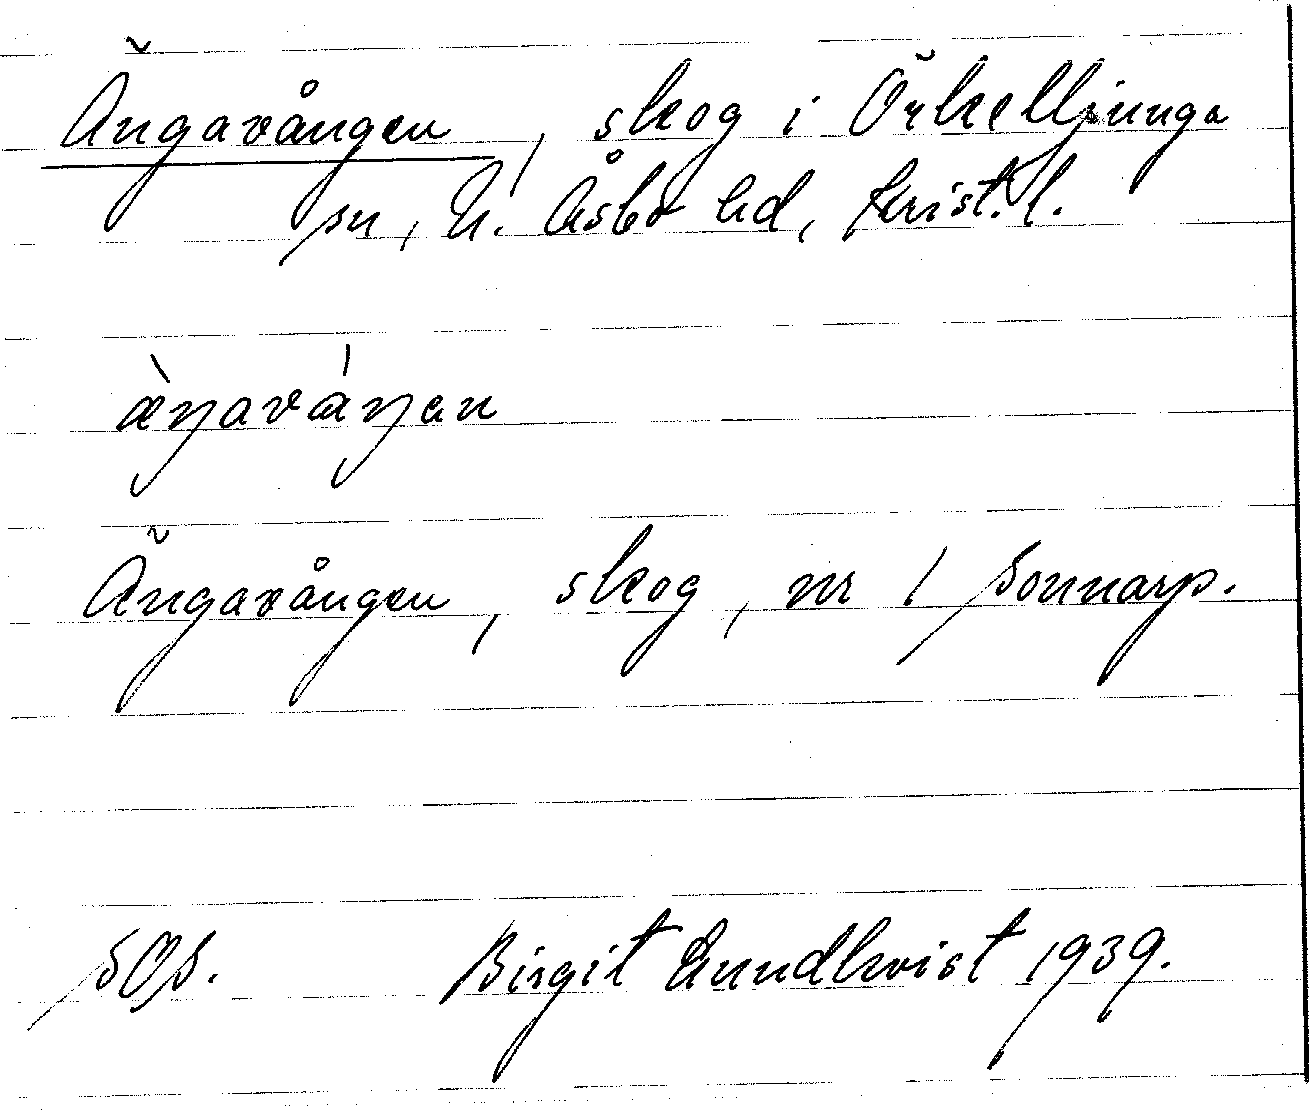 Ängavången, skog i Örkelljunga
sn, N. Åsbo hd, Krist. l.
æ̀ŋaváŋan
Ängavången, skog, nr 1 Sonnarp.
SOS. Birgit Lundkvist 1939.